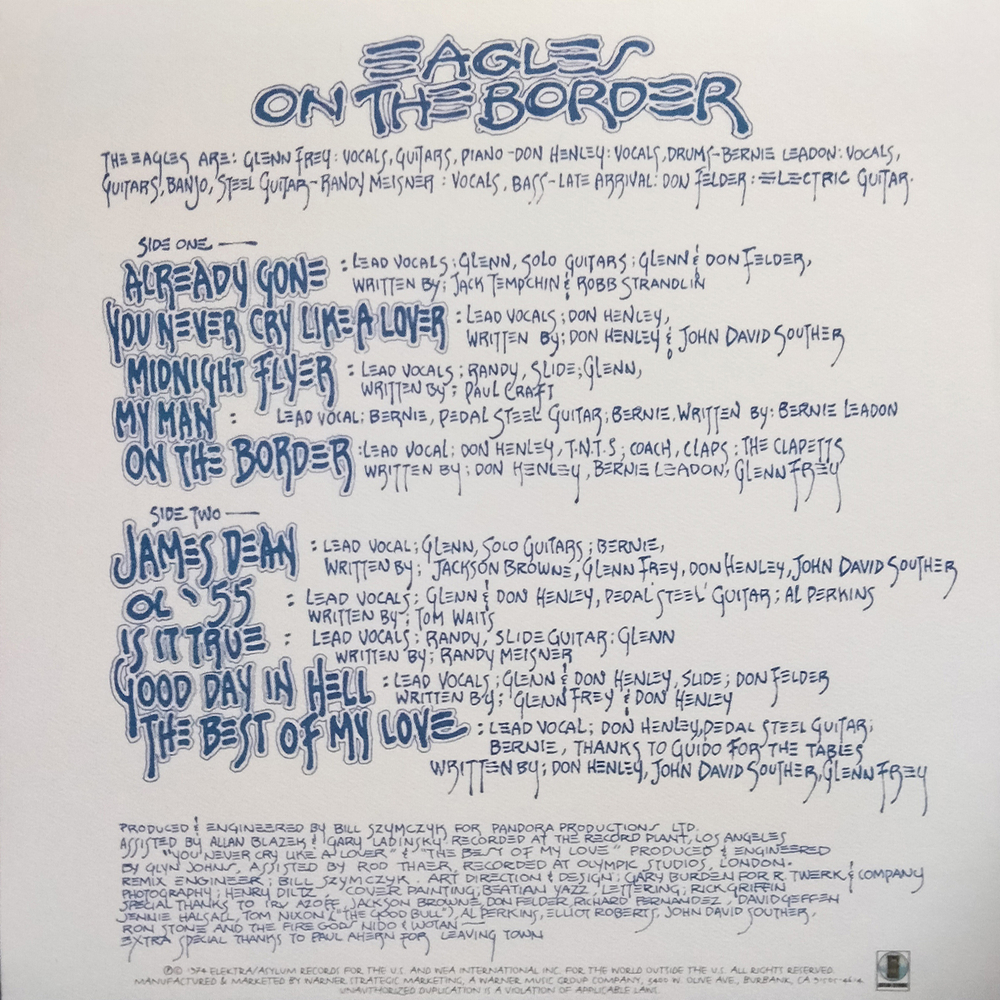 EAGLES
ON THE BORDER
THE EAGLES ARE: GLENN FREY: VOCALS, GUITARS, PIANO - DON HENLEY: VOCALS, DRUMS - BERNIE LEADON: VOCALS,
GUITARS, BANJO, STEEL GUITAR - RANDY MEISNER : VOCALS, BASS - LATE ARRIVAL: DON FELDER : ELECTRIC GUITAR.
SIDE ONE —
ALREADY GONE : LEAD VOCALS ; GLENN, SOLO GUITARS ; GLENN & DON FELDER,
WRITTEN BY ; JACK TEMPCHIN & ROBB STRANDLIN
YOU NEVER CRY LIKE A LOVER : LEAD VOCALS ; DON HENLEY,
WRITTEN BY ; DON HENLEY & JOHN DAVID SOUTHER
MIDNIGHT FLYER : LEAD VOCALS ; RANDY, SLIDE ; GLENN,
WRITTEN BY ; PAUL CRAFT
MY MAN : LEAD VOCAL ; BERNIE, PEDAL STEEL GUITAR ; BERNIE, WRITTEN BY : BERNIE LEADON
ON THE BORDER : LEAD VOCAL ; DON HENLEY, T.N.T.S ; COACH, CLAPS : THE CLAPETTS
WRITTEN BY ; DON HENLEY, BERNIE LEADON, GLENN FREY
SIDE TWO —
JAMES DEAN : LEAD VOCAL ; GLENN, SOLO GUITARS ; BERNIE,
WRITTEN BY ; JACKSON BROWNE, GLENN FREY, DON HENLEY, JOHN DAVID SOUTHER
OL '55 : LEAD VOCALS ; GLENN & DON HENLEY, PEDAL STEEL GUITAR ; AL PERKINS
WRITTEN BY ; TOM WAITS
IS IT TRUE : LEAD VOCALS ; RANDY, SLIDE GUITAR : GLENN
WRITTEN BY ; RANDY MEISNER
GOOD DAY IN HELL : LEAD VOCALS ; GLENN & DON HENLEY, SLIDE ; DON FELDER
WRITTEN BY ; GLENN FREY & DON HENLEY
THE BEST OF MY LOVE : LEAD VOCAL ; DON HENLEY, PEDAL STEEL GUITAR ;
BERNIE, THANKS TO GUIDO FOR THE TABLES
WRITTEN BY ; DON HENLEY, JOHN DAVID SOUTHER, GLENN FREY
PRODUCED & ENGINEERED BY BILL SZYMCZYK FOR PANDORA PRODUCTIONS LTD.
ASSISTED BY ALLAN BLAZEK & GARY LADINSKY RECORDED AT THE RECORD PLANT, LOS ANGELES
"YOU NEVER CRY LIKE A LOVER" & "THE BEST OF MY LOVE" PRODUCED & ENGINEERED
BY GLYN JOHNS, ASSISTED BY ROD THAER RECORDED AT OLYMPIC STUDIOS, LONDON.
REMIX ENGINEER ; BILL SZYMCZYK, ART DIRECTION & DESIGN ; GARY BURDEN FOR R. TWERK & COMPANY
PHOTOGRAPHY ; HENRY DILTZ, COVER PAINTING; BEATIAN YAZZ, LETTERING ; RICK GRIFFIN
SPECIAL THANKS TO IRV AZOFF, JACKSON BROWNE, DON FELDER, RICHARD FERNANDEZ, DAVID GEFFEN
JENNIE HALSALL, TOM NIXON ("THE GOOD BULL"), AL PERKINS, ELLIOT ROBERTS, JOHN DAVID SOUTHER,
RON STONE AND THE FIRE GODS NIDO & WOTAN —
EXTRA SPECIAL THANKS TO PAUL AHERN FOR LEAVING TOWN
℗© 1974 ELEKTRA/ASYLUM RECORDS FOR THE U.S. AND WEA INTERNATIONAL INC. FOR THE WORLD OUTSIDE THE U.S. ALL RIGHTS RESERVED.
MANUFACTURED & MARKETED BY WARNER STRATEGIC MARKETING, A WARNER MUSIC GROUP COMPANY, 3400 W. OLIVE AVE., BURBANK, CA
UNAUTHORIZED DUPLICATION IS A VIOLATION OF APPLICABLE LAWS.